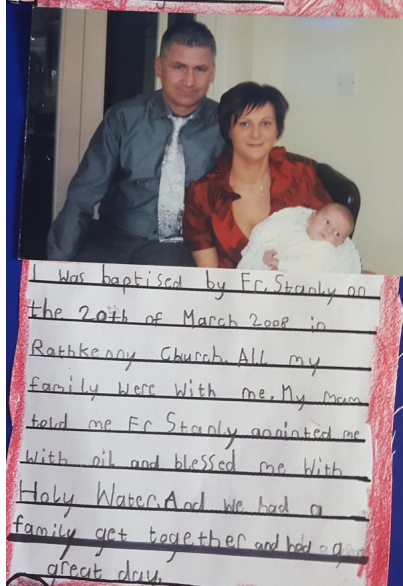 I was baptised by Fr. Stanly on
the 20th of March 2008 in
Rathkenny Church. All my
family were with me. My mam
told me Fr Stanly anninted me
with oil and blessed me with
Holy Water. And we had a
family get together and had a
great day.